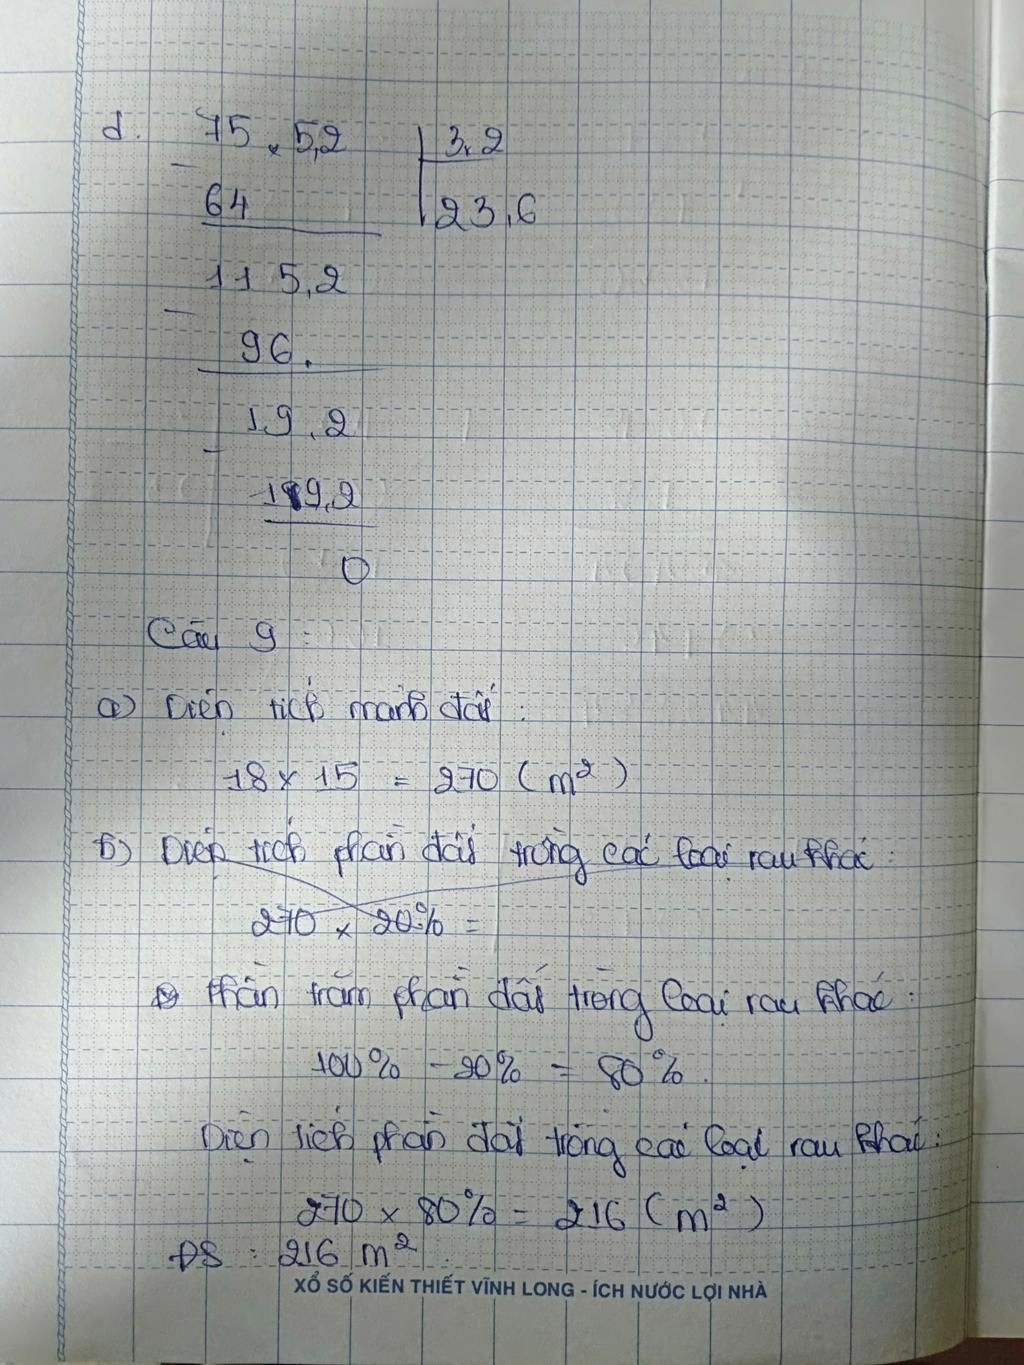 d. 75,5,2 3,2
64 23,6
115,2
96.
19,2
19,2
0
Câu 9 :
a) Diện tích mảnh đất :
18 x 15 = 270 ( m² )
b) Diện tích phần đất trồng các loại rau khác :
270 x 20% =
Phần trăm phần đất trồng loại rau khác :
100% - 20% = 80%.
Diện tích phần đất trồng các loại rau khác :
270 x 80% = 216 ( m² )
ĐS : 216 m².
XỔ SỐ KIẾN THIẾT VĨNH LONG - ÍCH NƯỚC LỢI NHÀ